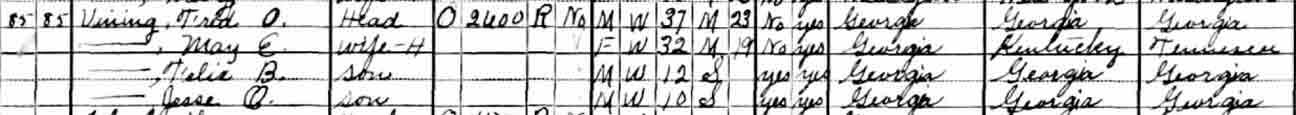 85 85 Vining, Fred O. Head O 2600 R No M W 37 M 23 No yes Georgia Georgia Georgia
———, May E. Wife-H F W 32 M 19 No yes Georgia Kentucky Tennessee
———, B. son M W 12 S yes yes Georgia Georgia Georgia
——— Jesse O. son M W 10 S yes yes Georgia Georgia Georgia